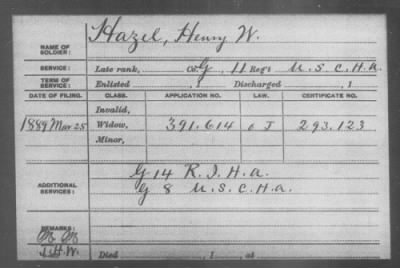 Hazel, Henry W.
NAME OF SOLDIER:
SERVICE: Late rank, Co. G, 11 Reg't U.S.C.H.A.
TERM OF SERVICE: Enlisted , 1 Discharged , 1
DATE OF FILING. CLASS. APPLICATION NO. LAW. CERTIFICATE NO.
Invalid,
1889 Mar 25 Widow, 391.614 J 293.123
Minor,
ADDITIONAL SERVICES: G 14 R.I.H.A.
G 8 U.S.C.H.A.
REMARKS:
H.W.
Died , 1 , at